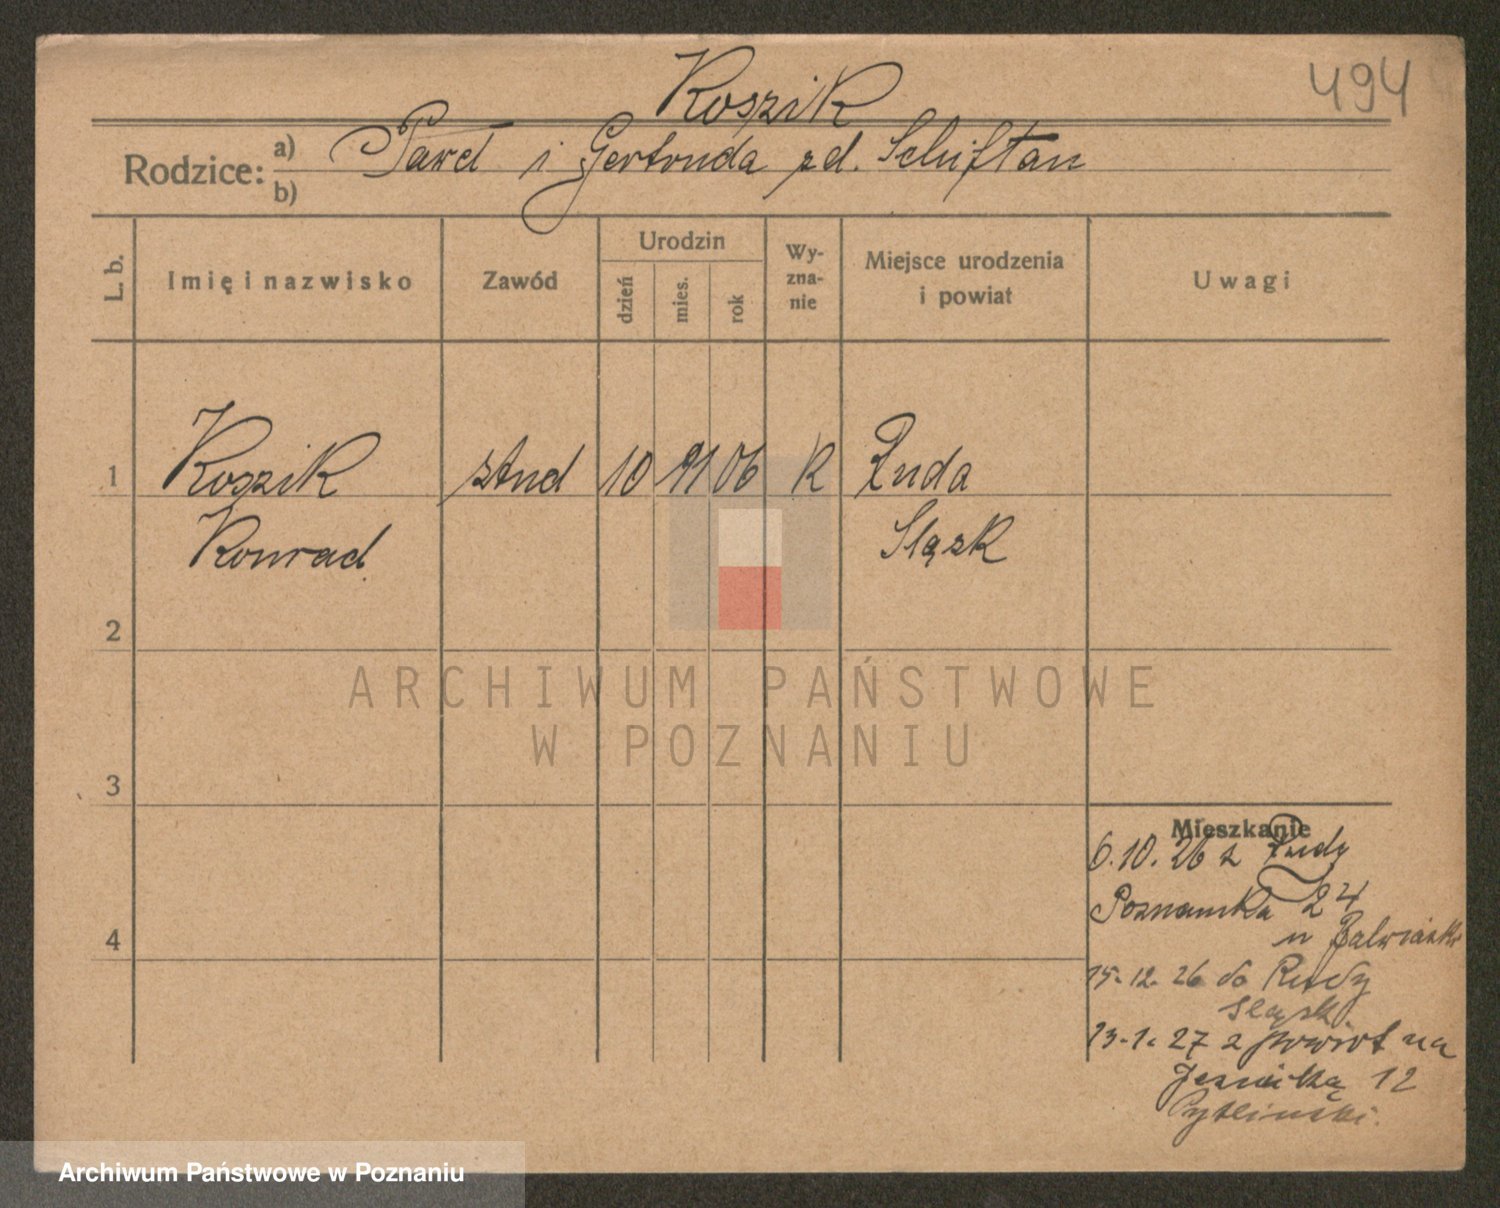 494
Koszik
Rodzice: a) Paweł i Gertruda zd. Schiftan
b)
L. b.
Imię i nazwisko
Zawód
Urodzin
dzień
mies.
rok
Wy-
zna-
nie
Miejsce urodzenia
i powiat
Uwagi
1 Koszik stud 10 11 06 K Ruda
Konrad Śląsk
2
3
4
Mieszkanie
6.10.26 z Rudy
Poznańska 24
u
15-12-26 do Rudy
Śląsk.
13-1-27 z powrot na
Jezuicką 12
Pytliński.
ARCHIWUM PAŃSTWOWE
W POZNANIU
Archiwum Państwowe w Poznaniu